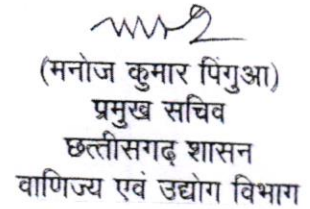 (मनोज कुमार पिंगुआ)
प्रमुख सचिव
छत्तीसगढ़ शासन
वाणिज्य एवं उद्योग विभाग